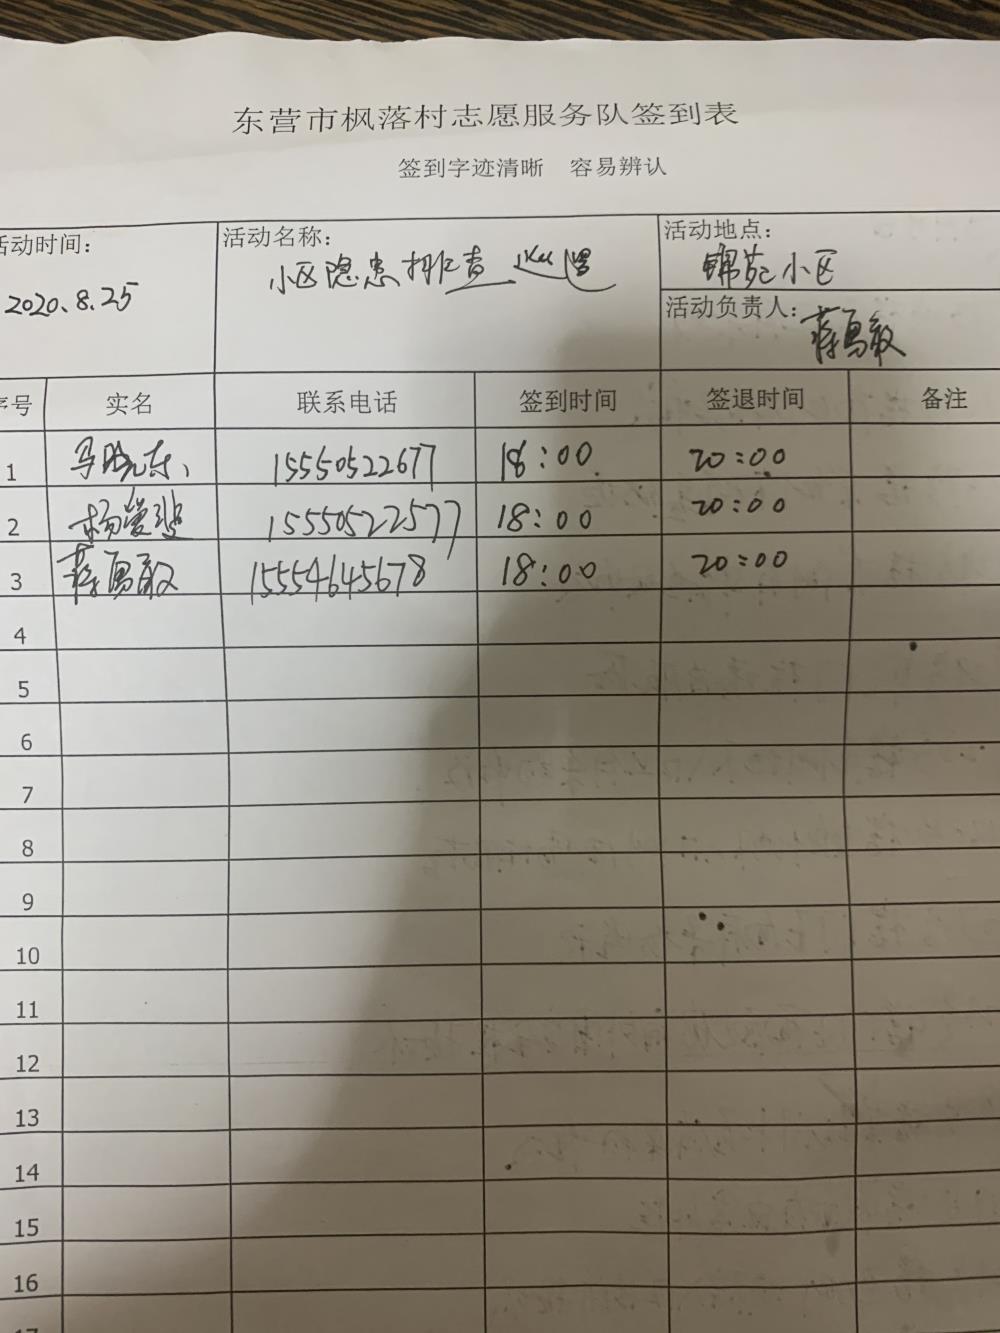 东营市枫落村志愿服务队签到表
签到字迹清晰 容易辨认
活动时间: 活动名称: 活动地点:
2020.8.25 小区隐患排查 锦苑小区
活动负责人: 蒋勇敢
序号 实名 联系电话 签到时间 签退时间 备注
1 马晓东 15550522677 18:00 20:00
2 杨爱 15550522577 18:00 20:00
3 蒋勇敢 15554645678 18:00 20:00
4
5
6
7
8
9
10
11
12
13
14
15
16
17